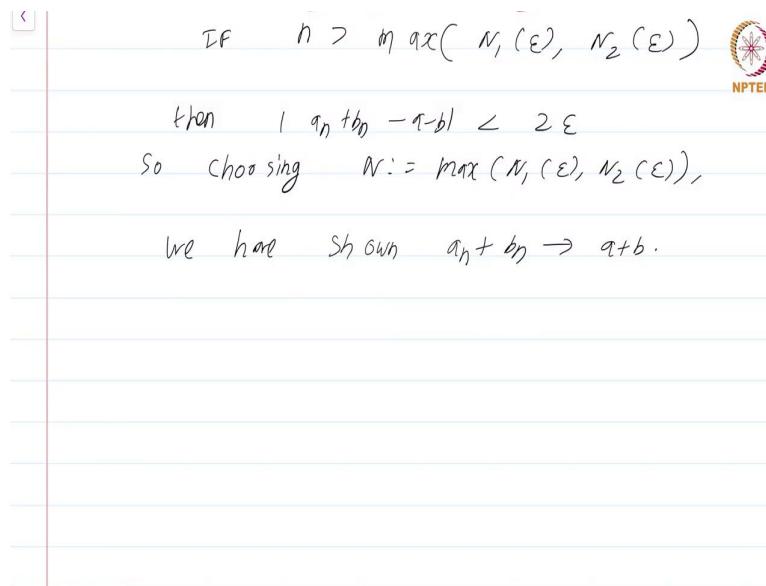 IF n > max( N₁(ε), N₂(ε))
NPTEL
then | aₙ + bₙ - a - b| < 2ε
So choosing N := max (N₁(ε), N₂(ε)),
we have shown aₙ + bₙ → a+b.